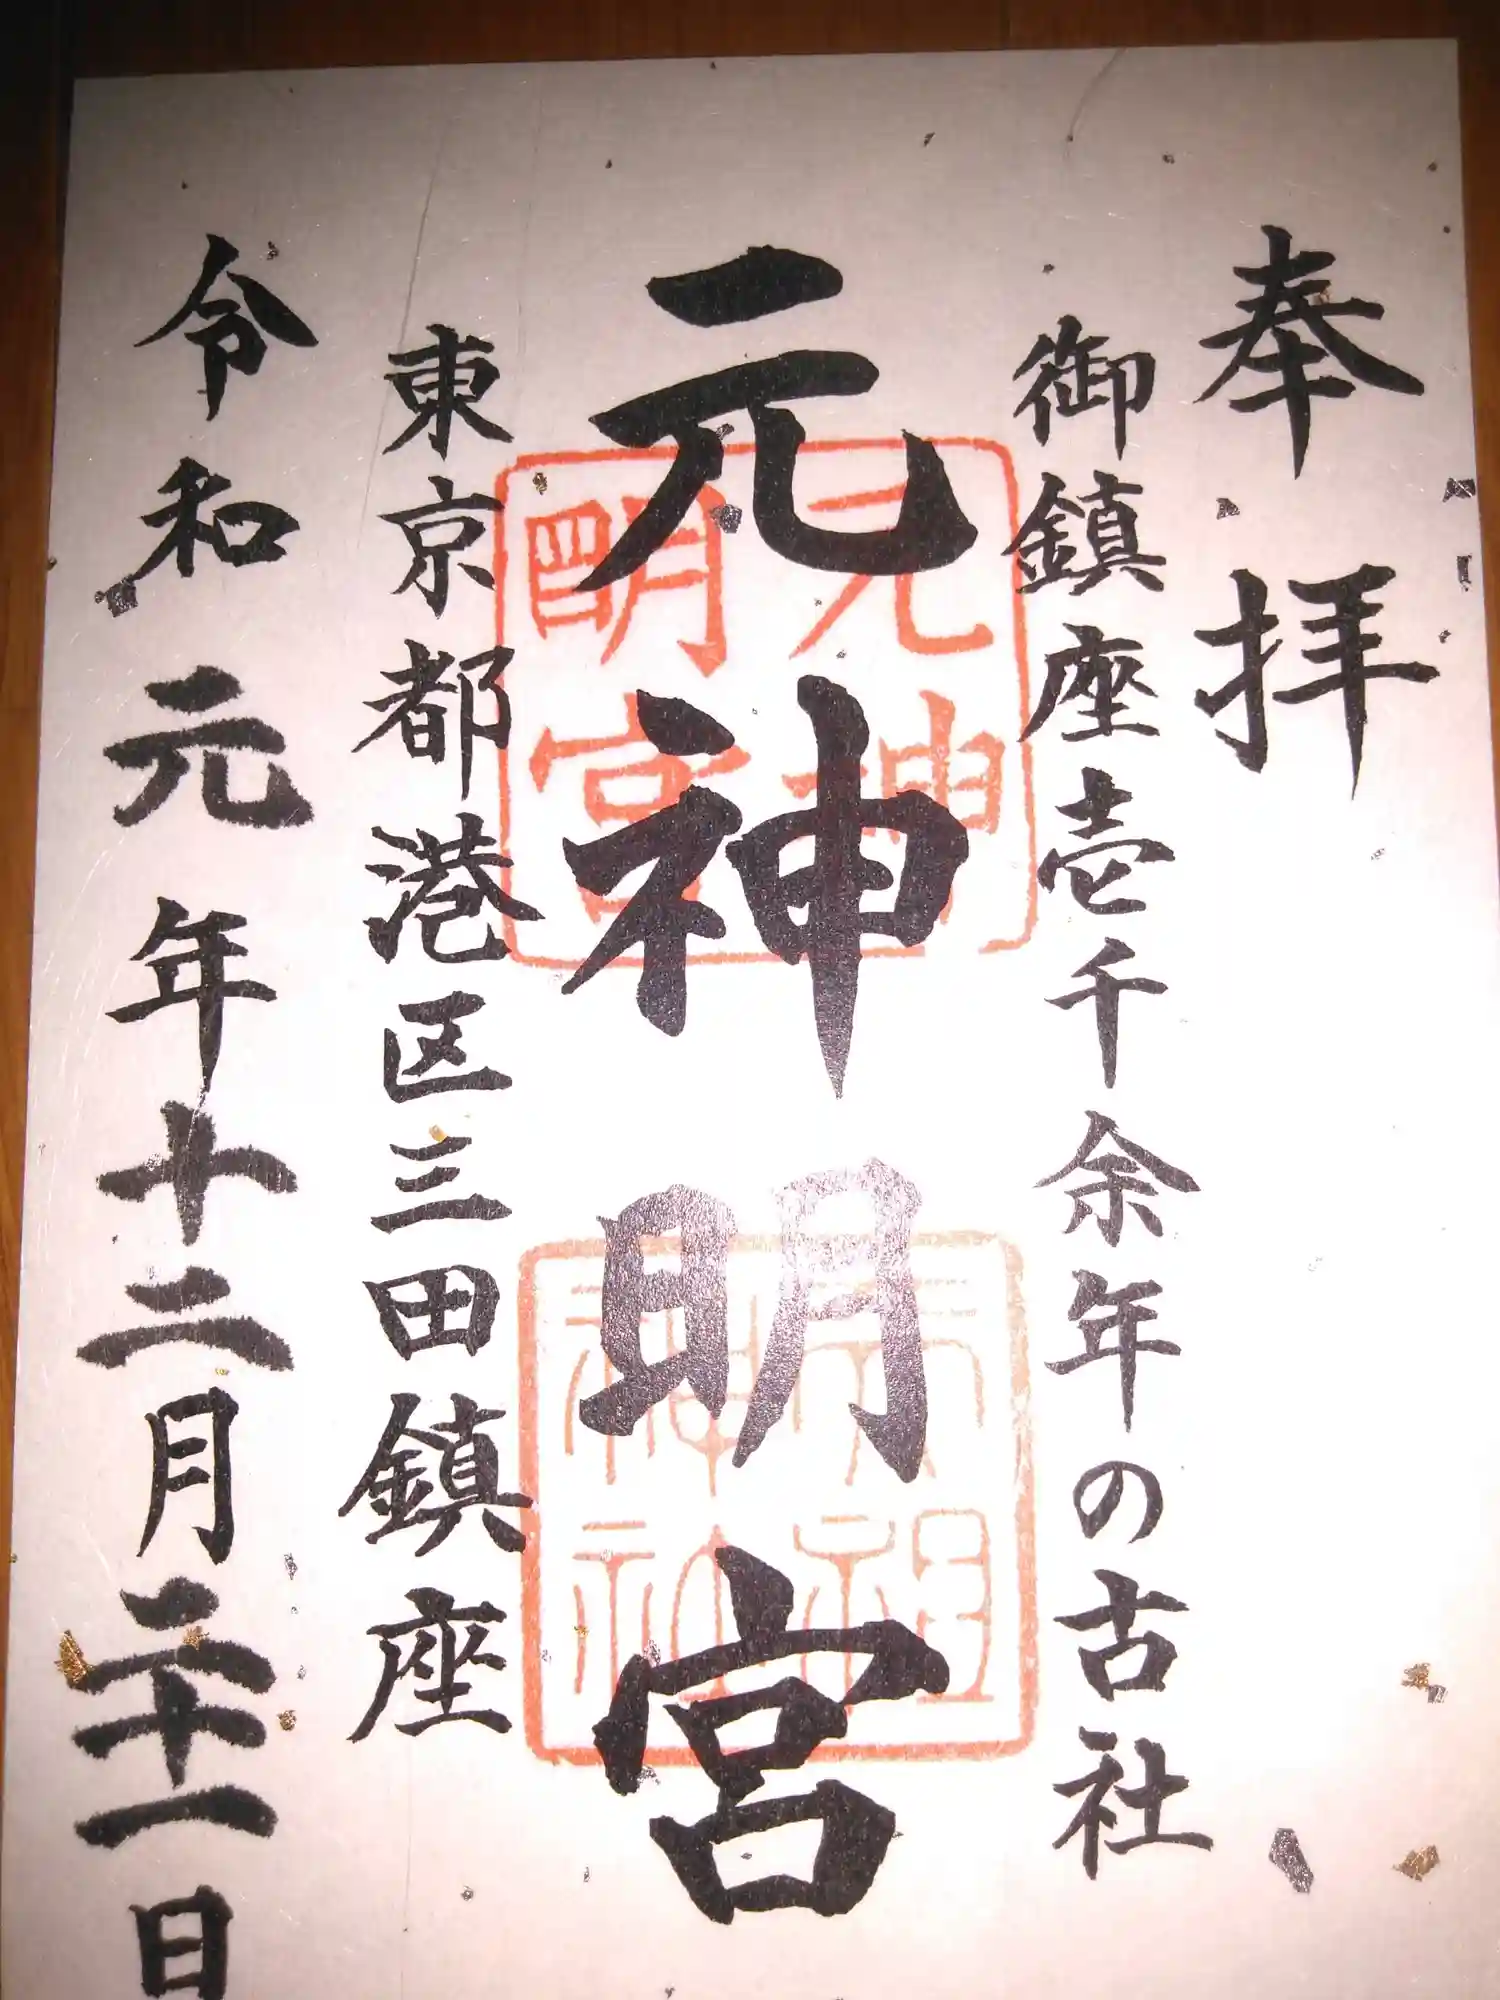 奉拝
御鎮座壱千余年の古社
元神明宮
東京都港区三田鎮座
令和元年十二月二十一日
元神
明宮